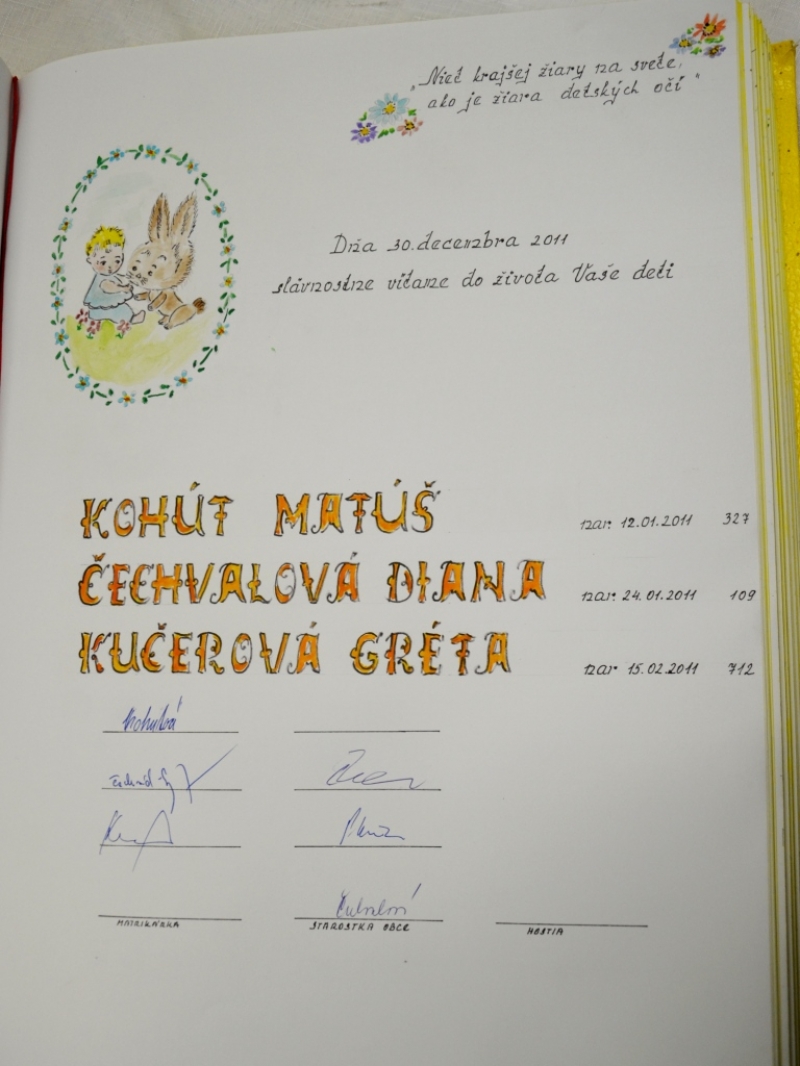 „Niet krajšej žiary na svete,
ako je žiara detských očí"
Dňa 30. decembra 2011
slávnostne vítame do života Vaše deti
KOHÚT MATÚŠ nar. 12.01.2011 327
ČECHVALOVÁ DIANA nar. 24.01.2011 109
KUČEROVÁ GRÉTA nar. 15.02.2011 712
Kohutová
MATRIKÁRKA STAROSTKA OBCE HOSTIA